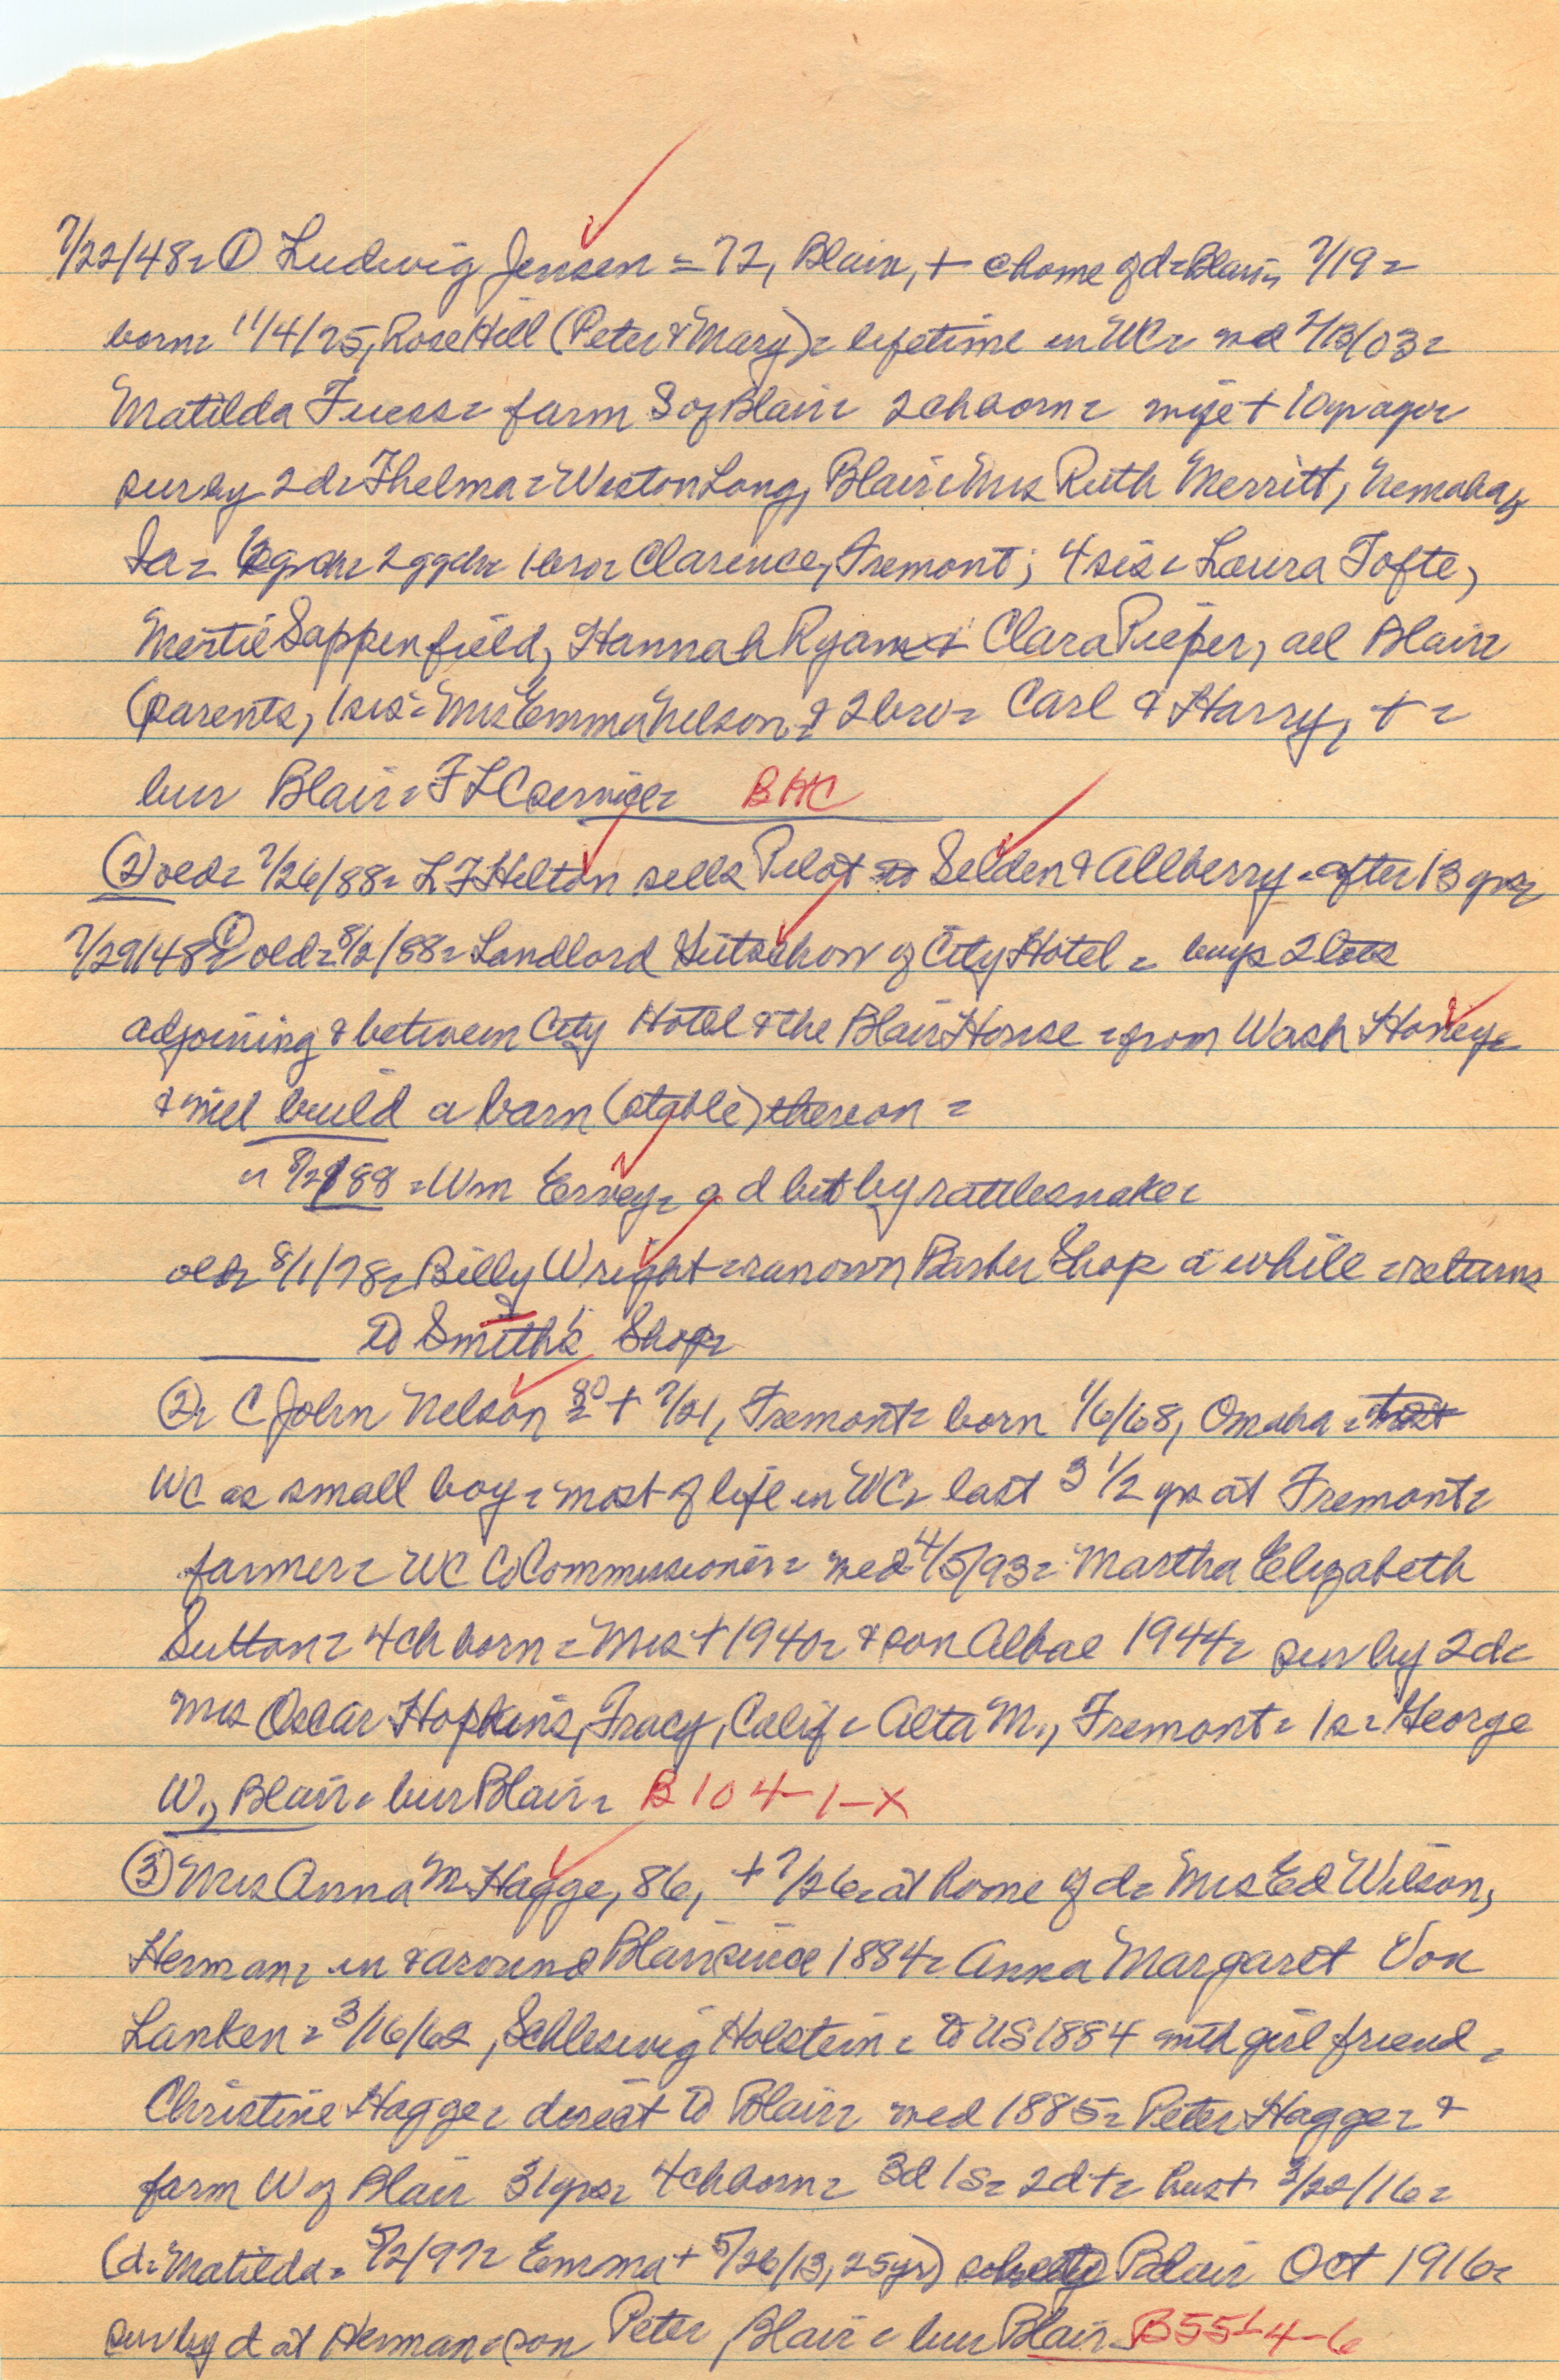 7/22/48 = ① Ludwig Jensen = 72, Blair, + @ home of d = Blair, 7/19 =
born = 11/4/75, Rose Hill (Peter & Mary) = lifetime in WC = md 2/18/03 =
Matilda Fuess = farm S of Blair = 2 ch born = wife + 10 yr ago =
sur by 2 d = Thelma = Weston Long, Blair = Mrs Ruth Merritt, Nemaha,
Ia = gch = 2 ggch = 1 bro = Clarence, Fremont; 4 sis = Laura Tofte,
Mertie Sappenfield, Hannah Ryan & Clara Pieper, all Blair =
(parents, 1 sis = Mrs Emma Nelson & 2 bro = Carl & Harry, + =
bur Blair = FLC service = BHC
② old = 7/26/88 = L F Hilton sells Pilot to Selden & Allberry = after 13 yrs =
7/29/48 = ① old = 8/2/88 = Landlord of City Hotel = buys 2 lots
adjoining & between City Hotel & the Blair House = from Wash Honey =
& will build a barn (stable) thereon =
" 8/2/88 = Wm Ervey = a d bit by rattlesnake =
old = 8/1/78 = Billy Wright = ran own Barber Shop a while = returns
to Smith's Shop =
② = C John Nelson = 80 + 7/21, Fremont = born 1/6/68, Omaha =
WC as small boy = most of life in WC = last 3 1/2 yrs at Fremont =
farmer = WC Co Commissioner = wed 4/5/93 = Martha Elizabeth
Sutton = 4 ch born = Mrs + 1940 = & son 1944 = sur by 2 d =
Mrs Oscar Hopkins, Tracy, Calif = Alta M., Fremont = 1 s = George
W., Blair = bur Blair = B 104-1-X
③ Mrs Anna M Hagge, 86, + 7/26 = at home of d = Mrs Ed Wilson,
Herman = in & around Blair since 1884 = Anna Margaret Von
Lanken = 3/16/62, Schleswig Holstein = to US 1884 with girl friend =
Christine Hagge = direct to Blair = wed 1885 = Peter Hagge = &
farm W of Blair 31 yrs = 4 ch born = 3 d 1 s = 2 d + = hus + 3/22/16 =
(d = Matilda = 5/2/97 = Emma + 5/26/13, 25 yr) Blair Oct 1916 =
sur by d at Herman = son Peter, Blair = bur Blair = B55-4-6